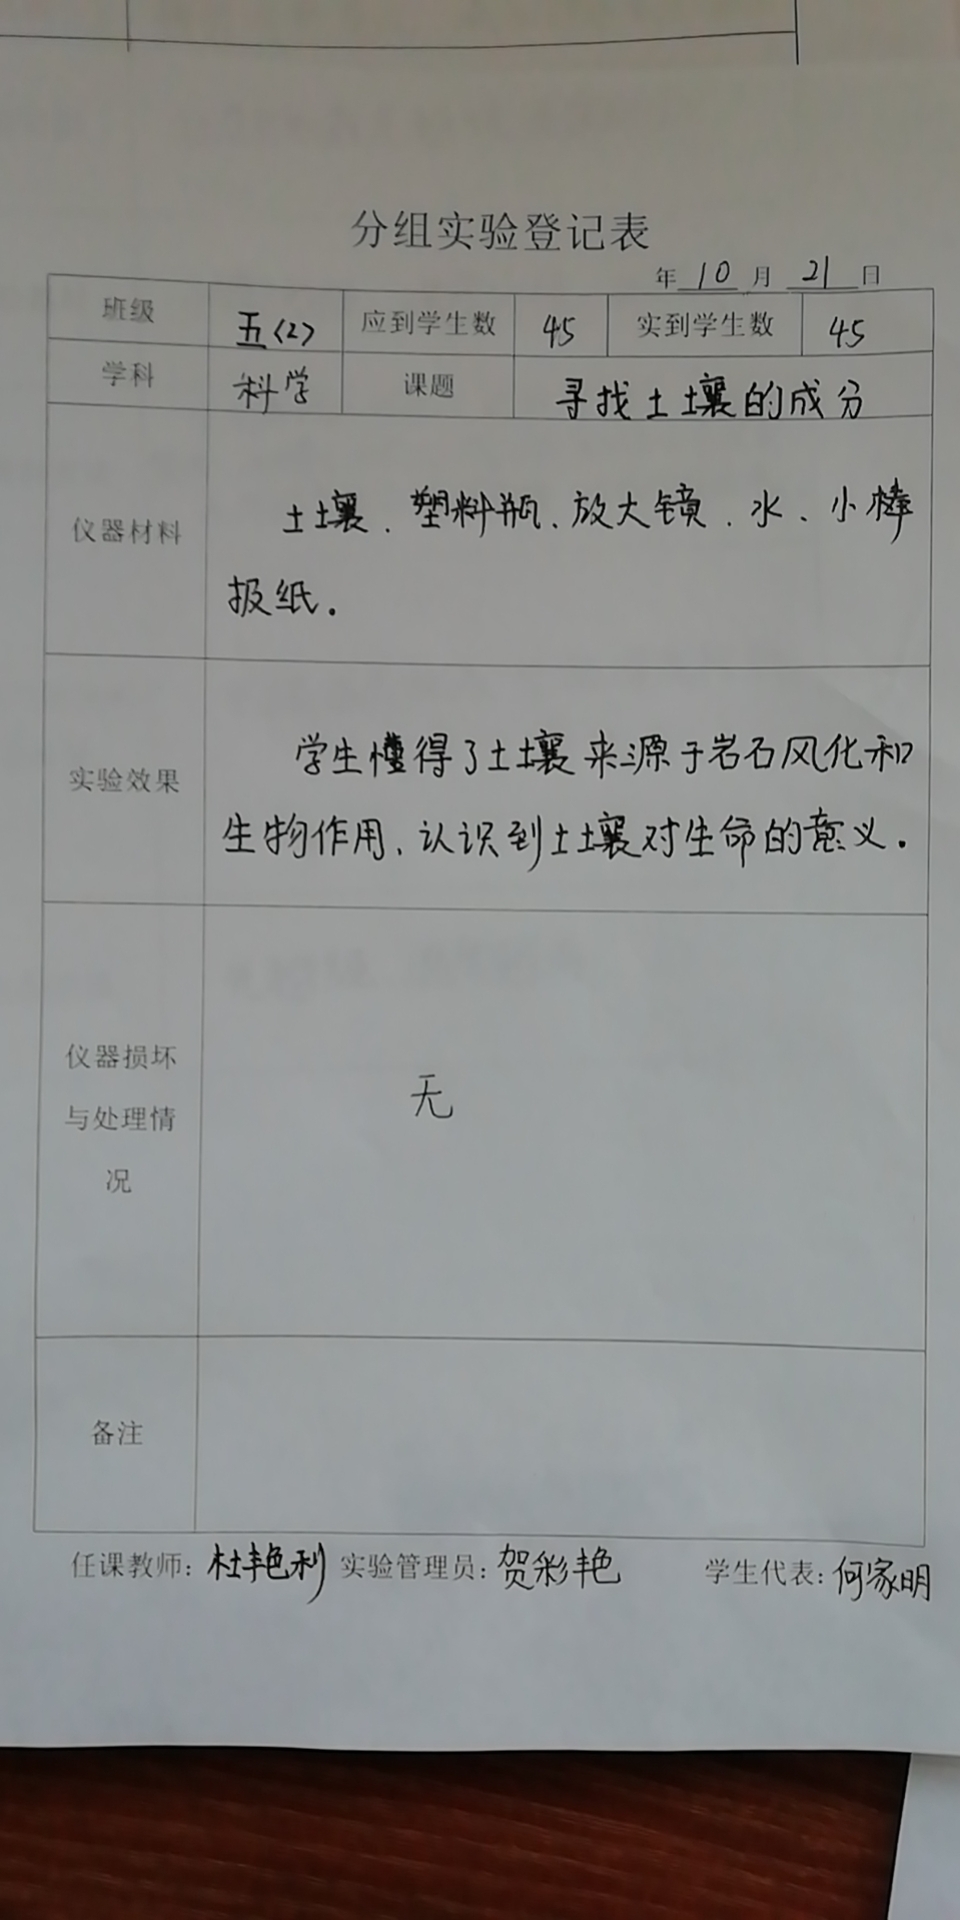 分组实验登记表
年 10 月 21 日
班级 五(2) 应到学生数 45 实到学生数 45
学科 科学 课题 寻找土壤的成分
仪器材料
土壤、塑料瓶、放大镜、水、小棒
报纸.
实验效果
学生懂得了土壤来源于岩石风化和
生物作用、认识到土壤对生命的意义.
仪器损坏
与处理情
况
无
备注
任课教师: 杜艳利 实验管理员: 贺彩艳 学生代表: 何家明